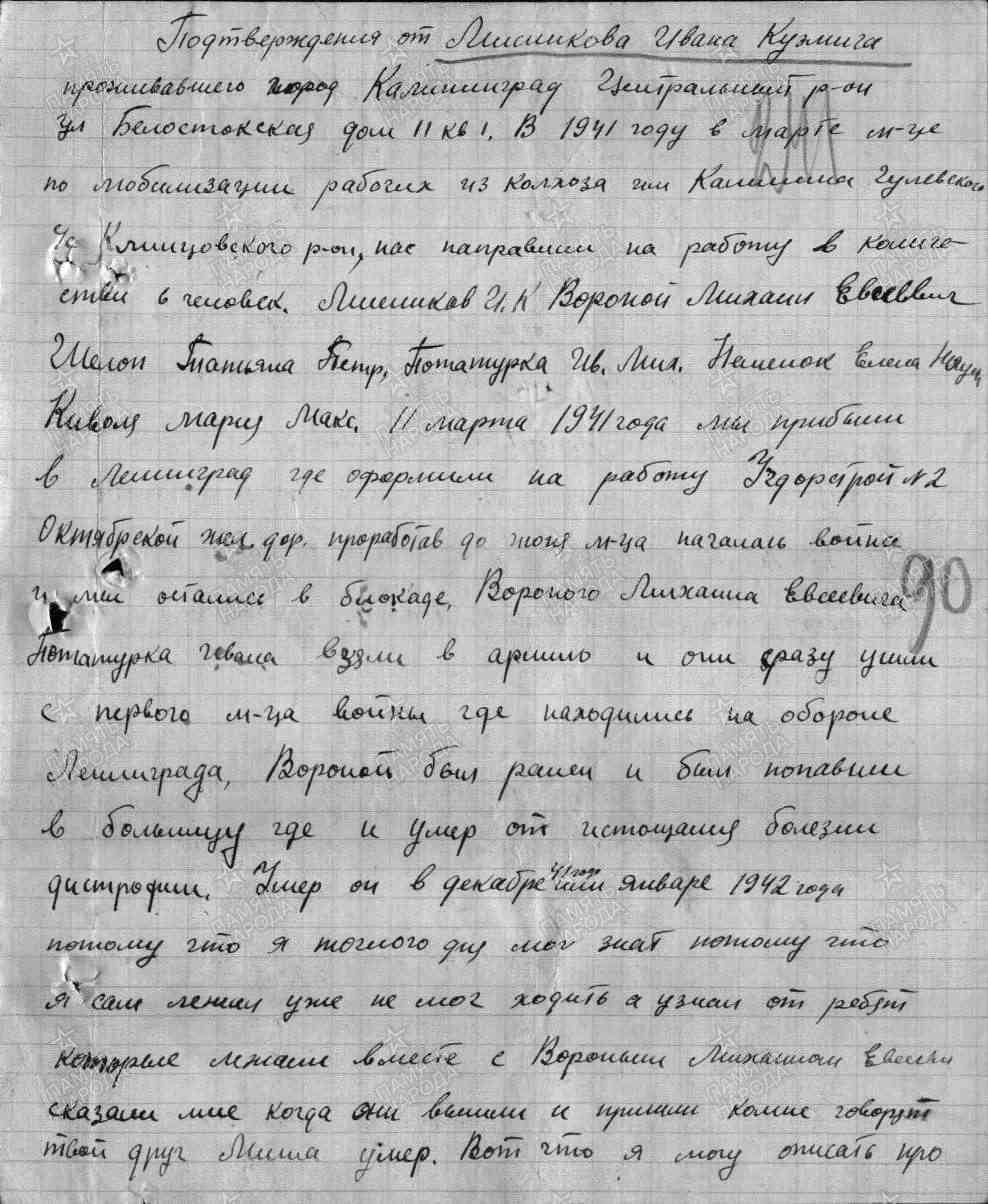 Подтверждения от Лисикова Ивана Кузмича
проживавшего город Калининград Центральный р-он
ул Белостокская дом 11 кв 1. В 1941 году в марте м-це
по мобилизации рабочих из колхоза им Калинина Гулевского
с/с Клинцовского р-он, нас направили на работу в количе-
стви 6 человек. И.К Вороной Михаил Евсеввич
Шелоп Татьяна Петр, Потатурка Ив. Мих. Елена Наум
Мария Макс. 11 марта 1941 года мы прибыли
в Ленинград где оформили на работу №2
Октябрской жел. дор. проработав до июня м-ца началась война
и мы остались в блокаде, Вороного Михаила Евсеевича
90
Потатурка Ивана взяли в армию и они сразу ушли
с первого м-ца войны где находились на обороне
Ленинграда, Вороной был ранен и был попавши
в больницу где и умер от истощания болезни
дистрофии. Умер он в декабре 41 год или январе 1942 года
потому что я точного дня мог знат потому что
я сам лежал уже не мог ходить а узнал от ребят
которые лежали вместе с Вороным Михаилом Евсееви
сказали мне когда они вышли и пришли комне говорят
твой друг Миша умер. Вот что я могу описать про
ПАМЯТЬ НАРОДА